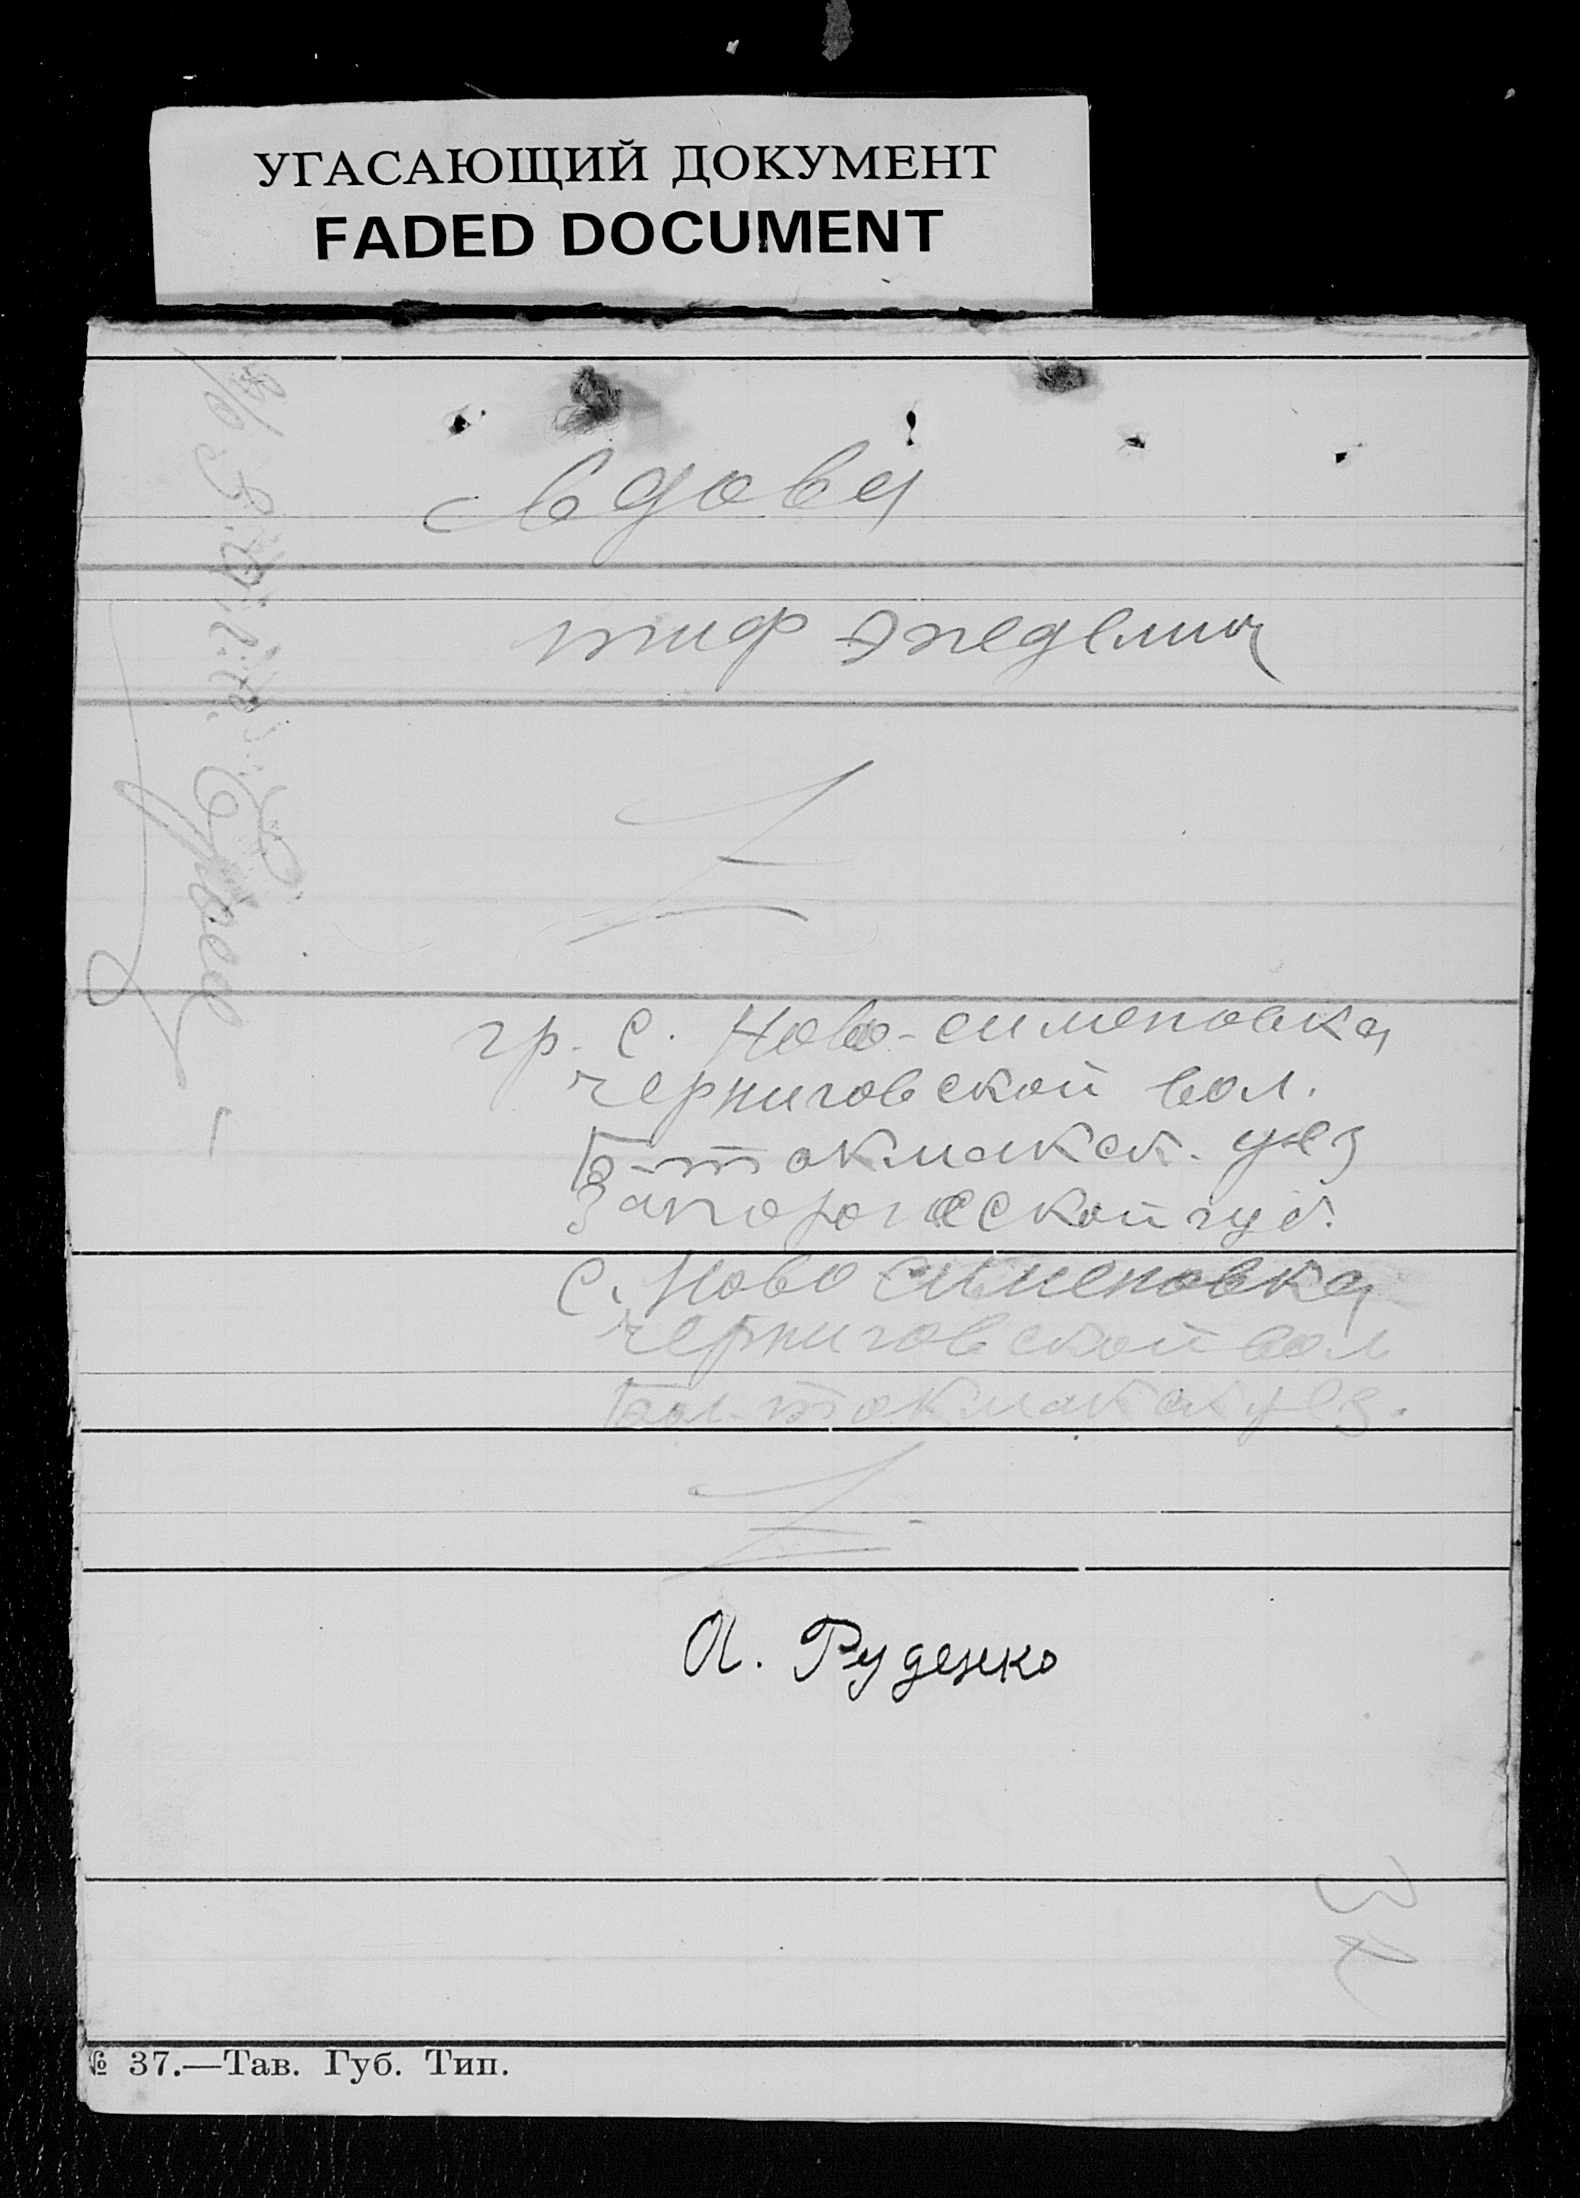 УГАСАЮЩИЙ ДОКУМЕНТ
FADED DOCUMENT
вдова
тиф эпедемия
гр. с. Ново-сименовка
черниговской вол.
Б-токмакск. уез
Запорожеской губ.
с. Ново сименовка
черниговской вол
Бол-токмакск уез.
А. Руденко
32
№ 37.—Тав. Губ. Тип.